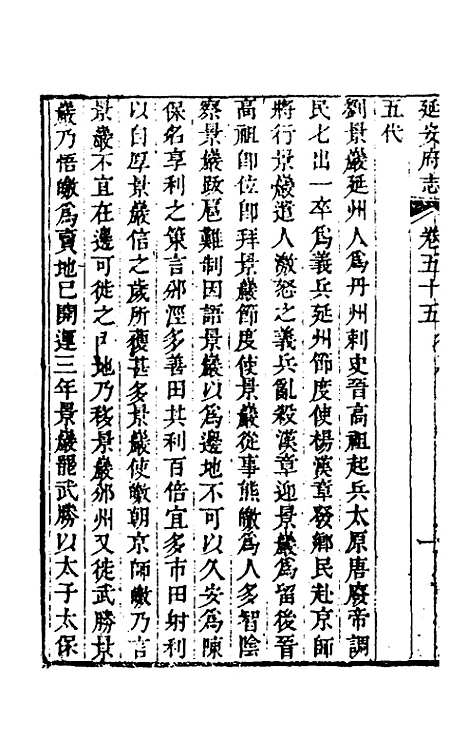 延安府志
卷五十五
一
五代
劉景巖延州人爲丹州刺史晉高祖起兵太原唐廢帝調
民七出一卒爲義兵延州節度使楊漢章發鄉民赴京師
將行景巖遣人激怒之義兵亂殺漢章迎景巖爲留後晉
高祖卽位卽拜景巖節度使景巖從事熊皦爲人多智陰
察景巖跋扈難制因語景巖以爲邊地不可以久安爲陳
保名享利之策言邠涇多善田其利百倍宜多市田射利
以自厚景巖信之歲所獲甚多景巖使皦朝京師皦乃言
景巖不宜在邊可徙之內地乃移景巖邠州又徙武勝景
巖乃悟皦爲賣地已開運三年景巖罷武勝以太子太保